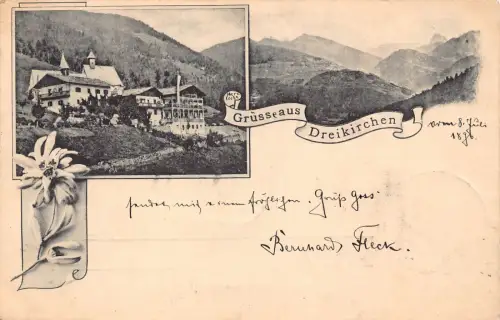 Grüsse aus
Dreikirchen
vom 8. Juli
1896
sendet mit einem fröhlichen "Grüß Gott"
Bernhard Fleck.